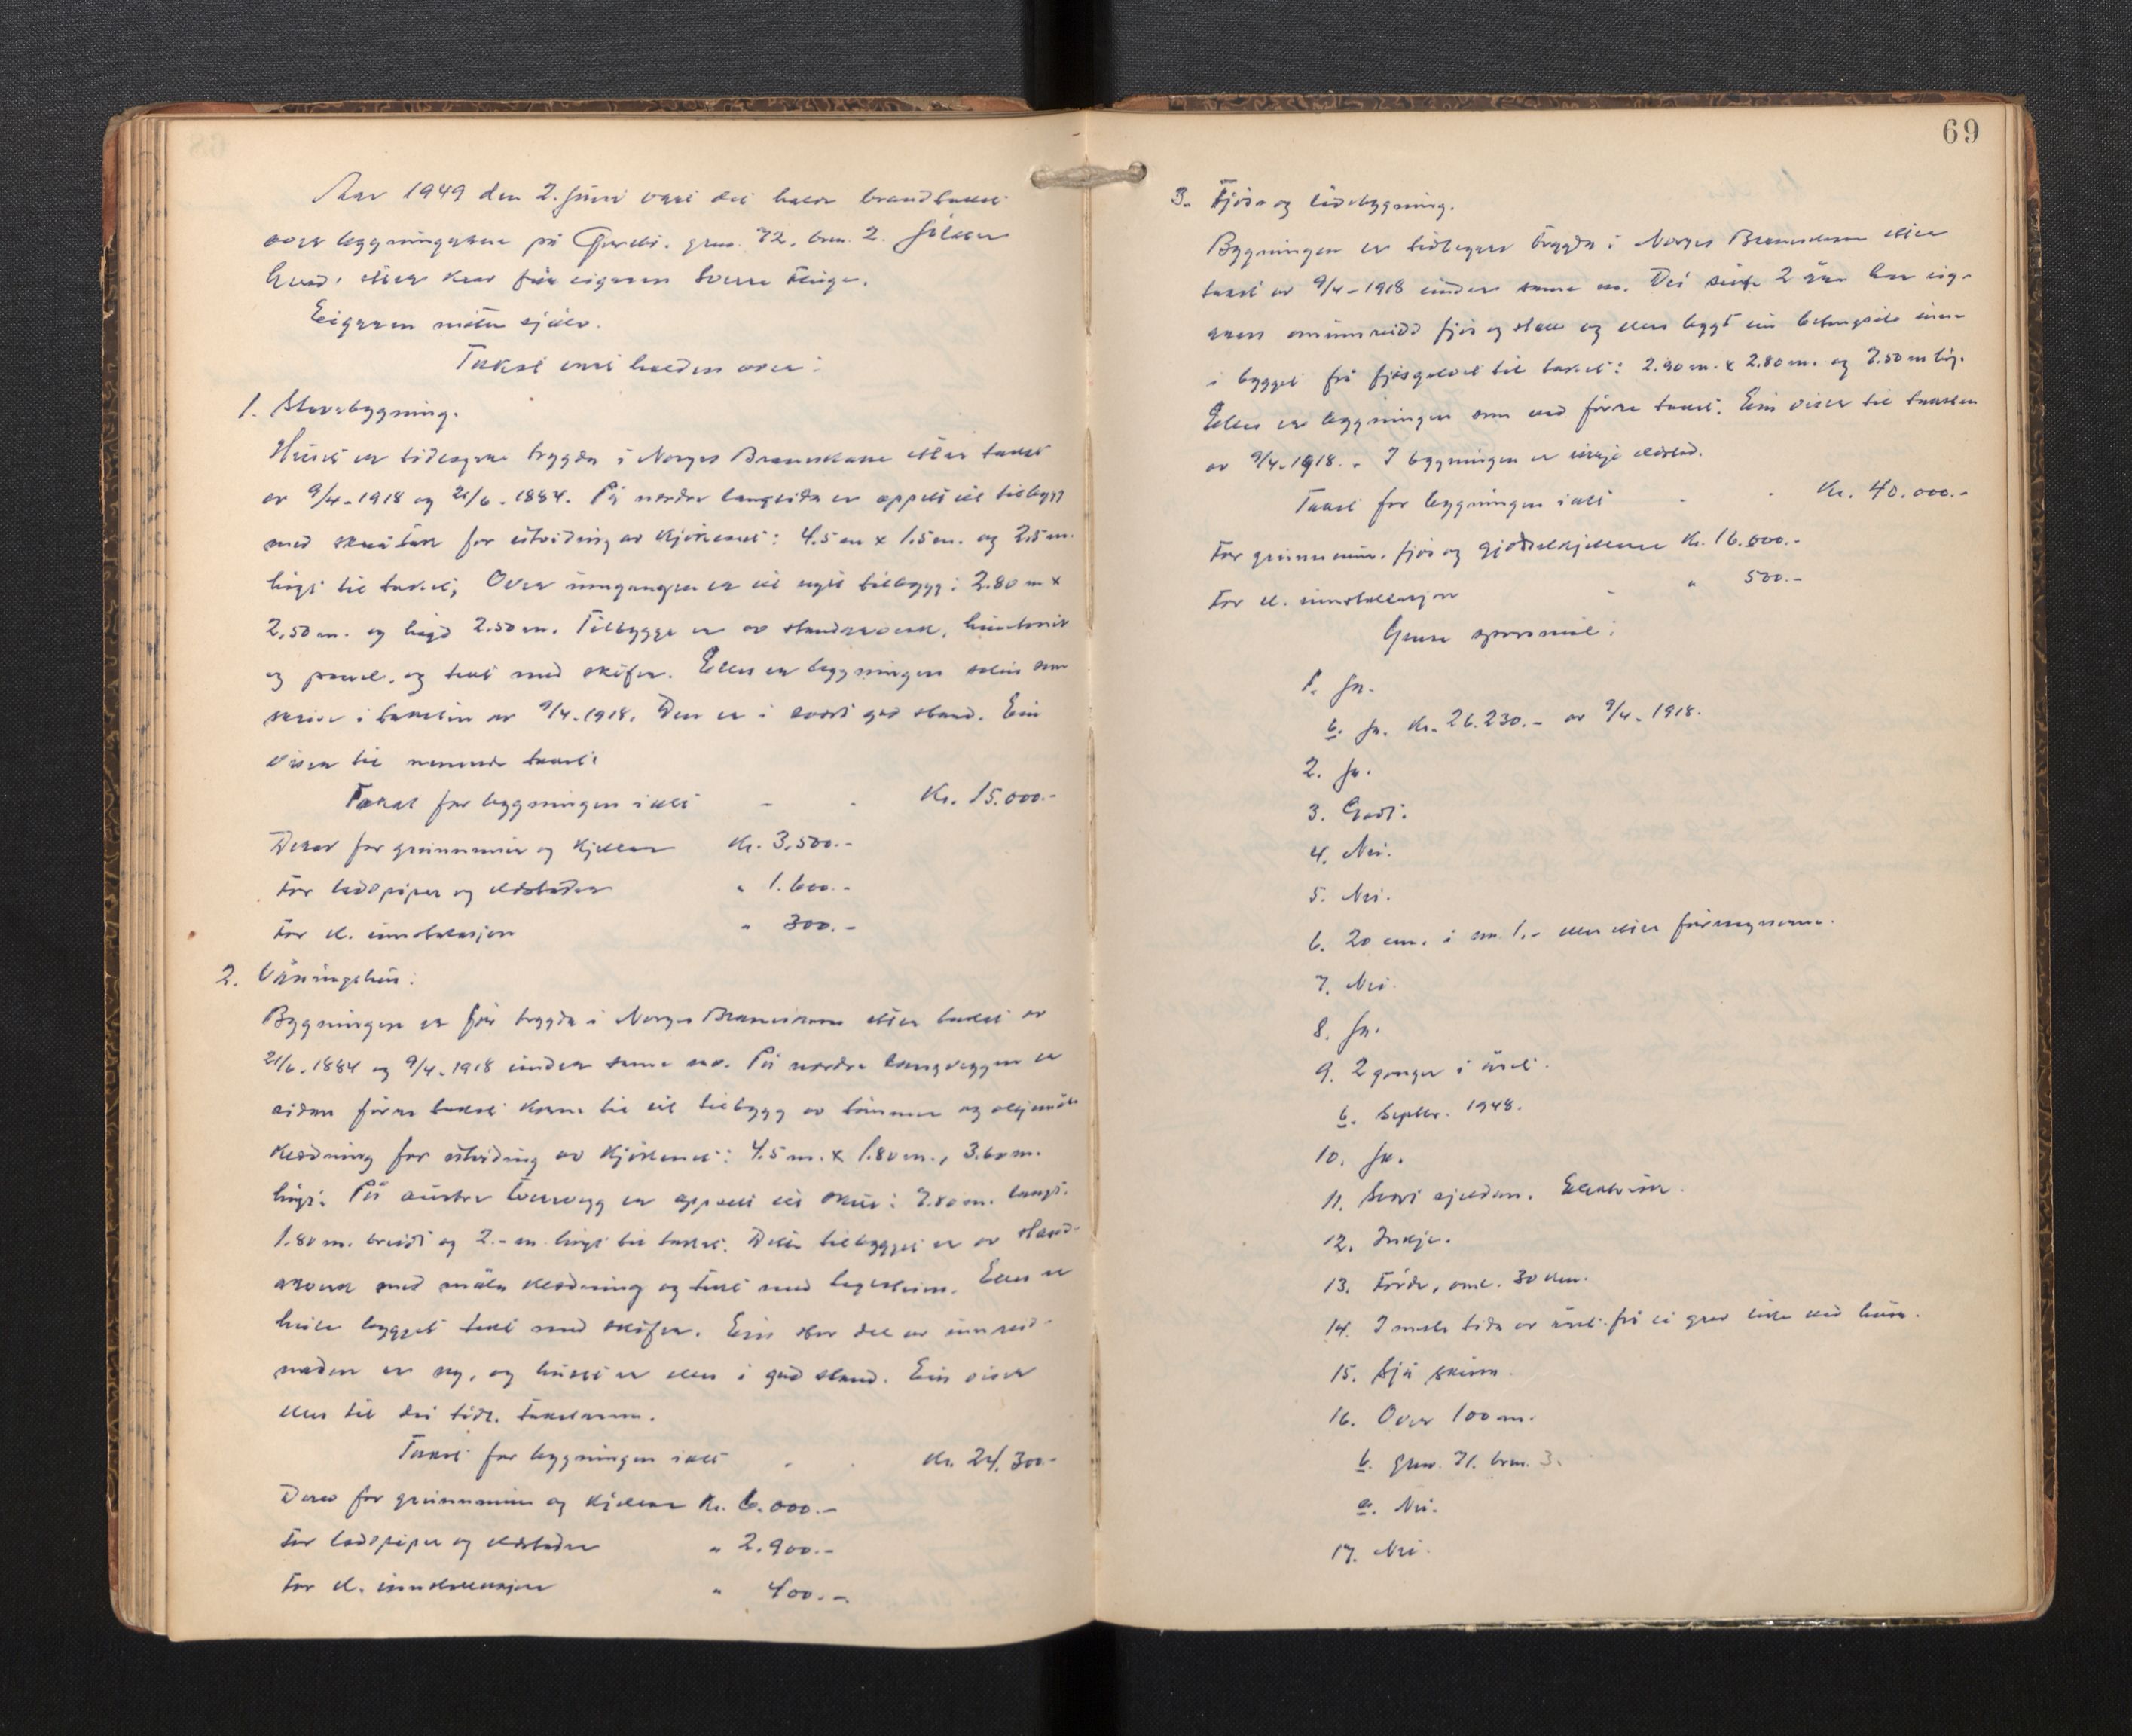 Aar 1949 den 2. Juni vart det halde brandtakst
over bygningane på gnr. 72. brn. 2. Jölster
herad, etter krav frå eigaren Sverre
Eigaren møtte sjølv.
Takst vart halden over:
1. Stovebygning.
Huset er tidlegare trygda i Norges Brannkasse etter takst
av 9/4-1918 og 21/6-1884. På nordre langsida er oppsett eit tilbygg
med skråtak for utviding av kjøkenet: 4.5 m x 1.5 m. og 2.5 m.
høgt til taket; Over inngangen er eit nytt tilbygg: 2.80 m x
2.50 m. og høgd 2.50 m. Tilbygga er av standarverk, huntonit
og panel, og tekt med skifer. Elles er bygningen soleis som
skrive i taksten av 9/4-1918. Den er i svært god stand. Ein
viser til nemnde takst.
Takst for bygningen i alt - - Kr. 15.000.-
Derav for grunnmur og kjellar Kr. 3.500.-
For ladd piper og eldstader " 1.600.-
For el. innstalasjon " 300.-
2. Våningshus:
Bygningen er før trygda i Norges Brannkasse etter takst av
21/6-1884 og 9/4-1918 under same nr. På nordre langveggen er
sidan førre takst kome til eit tilbygg av tømmer og oljemåla
kledning for utviding av kjøkenet: 4.5 m. x 1.80 m., 3.60 m.
høgt. På austre tverrvegg er oppsett eit skur: 7.80 m. langt.
1.80 m. breidt og 2.- m høgt til taket. Dette tilbygget er av stand-
arverk med måla kledning og tekt med Elles er
heile bygget tekt med skifer. Ein stor del av innreid-
naden er ny, og huset er elles i god stand. Ein viser
elles til dei tidl. takstane.
Takst for bygningen i alt - - Kr. 24.300.-
Derav for grunnmur og kjellar Kr. 6.000.-
For ladd piper og eldstader " 2.900.-
For el. innstallasjon " 400.-
69
3. Fjøs og løebygning.
Bygningen er tidlegare trygda i Norges Brannkasse etter
takst av 9/4-1918 under same nr. Dei siste 2 åra har eig-
aren ominnreidd fjøs og stall og elles bygt ein betongsilo inne
i bygget frå fjøsgolvet til taket: 2.90 m. x 2.80 m. og 7.50 m høg.
Elles er bygningen som ved førre takst. Ein viser til taksten
av 9/4-1918. - I bygningen er inkje eldstad.
Takst for bygningen i alt - - Kr. 40.000.-
For grunnmur, fjøs og gjødselkjellar Kr. 16.000.-
For el. innstallasjon - " 500.-
Grune spørsmål:
1. Ja.
b. Ja. Kr. 26.230.- av 9/4-1918.
2. Ja.
3. Godt.
4. Nei.
5. Nei.
6. 20 cm. i nr. 1.- elles etter føresegnene.
7. Nei.
8. Ja.
9. 2 gonger i året.
b. Septbr. 1948.
10. Ja.
11. Svært sjeldan. Elektrisk.
12. Inkje.
13. Förde, oml. 30 km.
14. I meste tida av året frå ei grov like ved husa.
15. Sjå skissa.
16. Over 100 m.
b. gnr. 71. brn. 3.
c. Nei.
17. Nei.